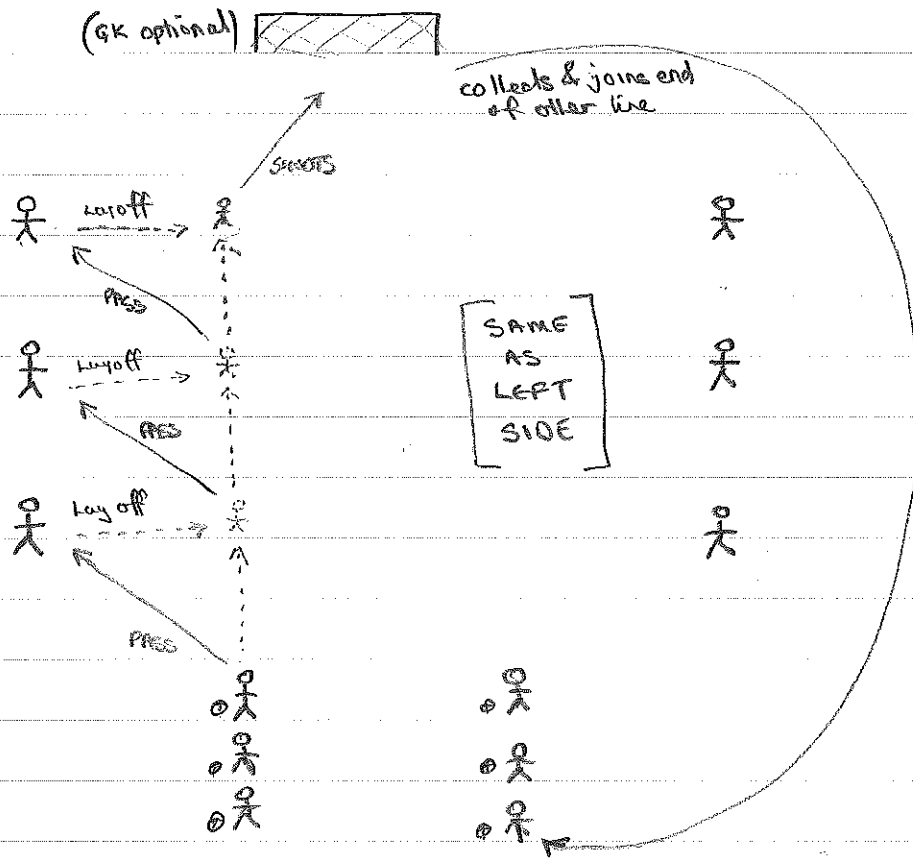 (GK optional)
collects & joins end
of other line
SHOOTS
Layoff
PASS
Layoff
PASS
Lay off
PASS
SAME
AS
LEFT
SIDE